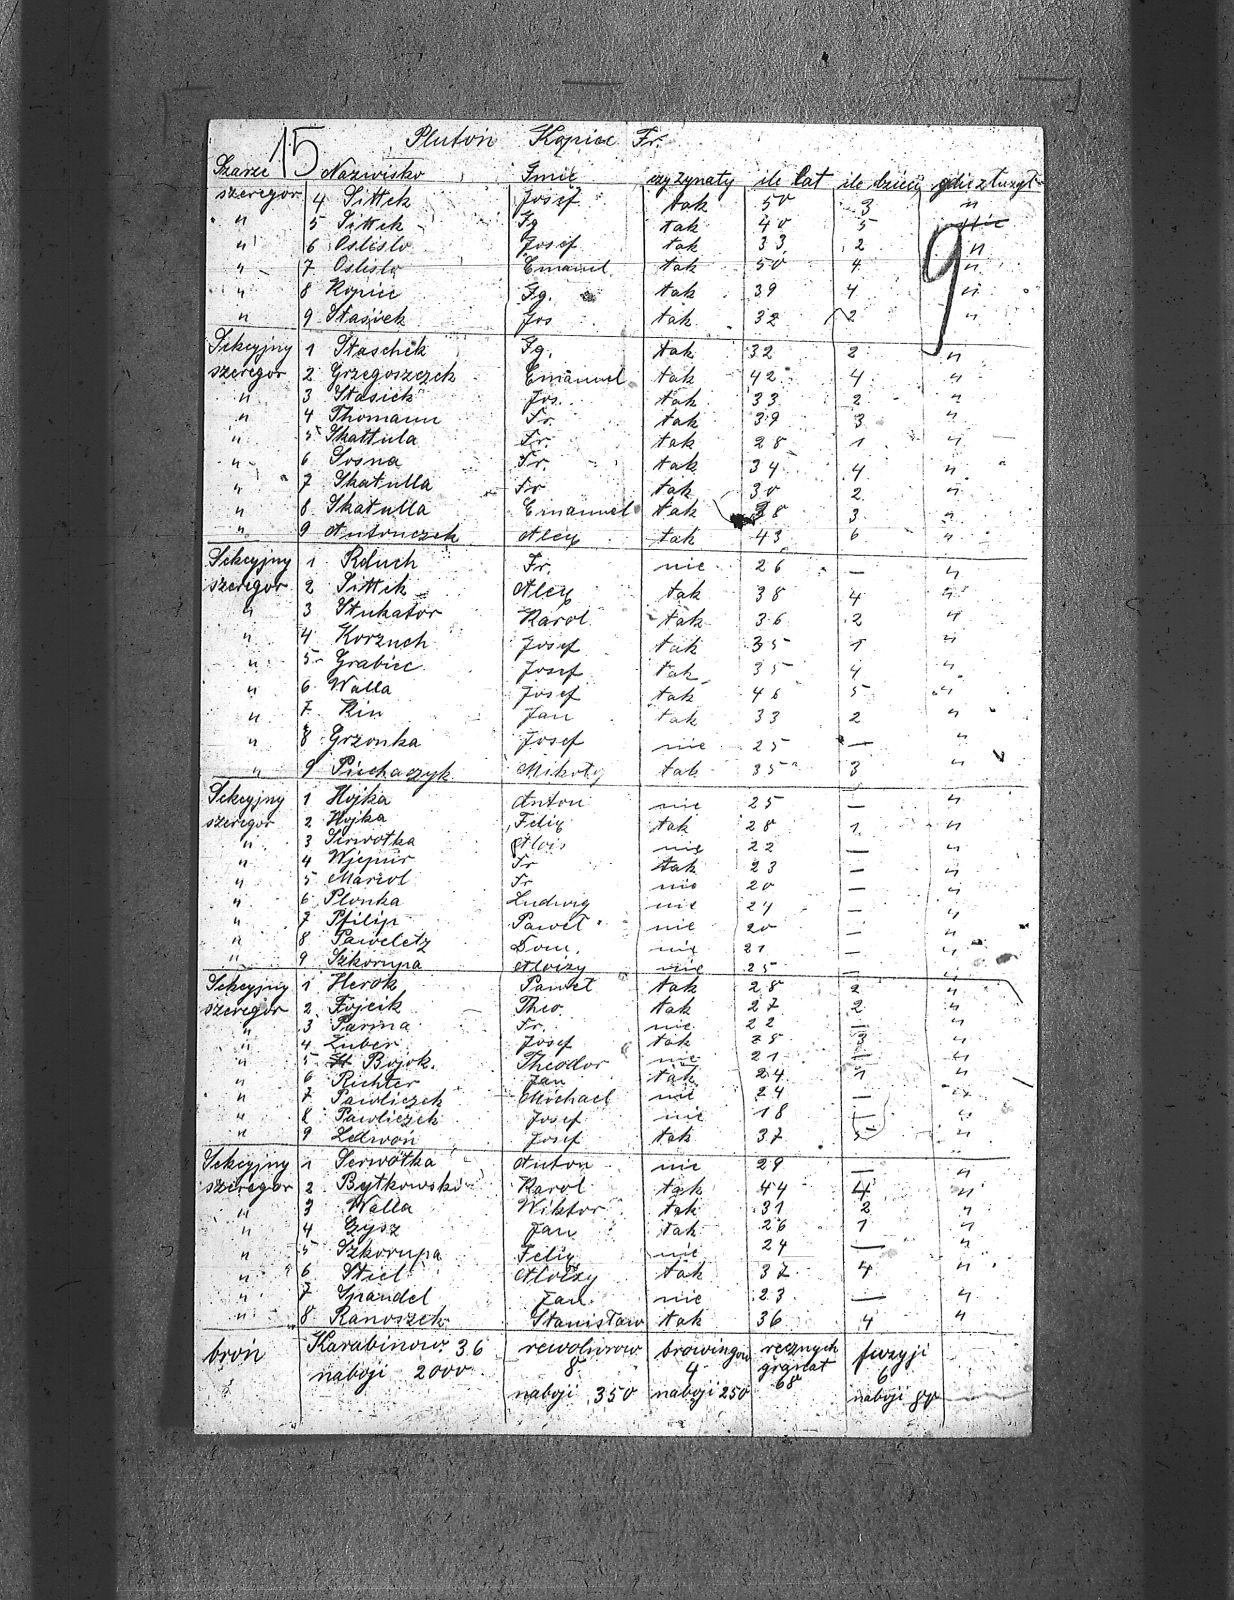 15 Pluton Kopiec Fr.
Szarże Nazwisko Imie czy żynaty ile lat ile dzieci gdzie służył
szeregor 4 Sittek Josef tak 50 3 "
" 5 Sittek Ig tak 40 5
" 6 Oslislo Josef tak 33 2 "
" 7 Oslislo Emanuel tak 50 4 "
" 8 Kopiec Ig. tak 39 4 "
" 9 Stasiek Jos tak 32 2 "
9
Sekcyjny 1 Staschek Ig. tak 32 2 "
szeregor 2 Grzegoszczek Emanuel tak 42 4 "
" 3 Stasiek Jos. tak 33 2 "
" 4 Thomann Fr. tak 39 3 "
" 5 Skattula Fr. tak 28 1 "
" 6 Sosna Fr. tak 34 4 "
" 7 Skatulla Fr tak 30 2 "
" 8 Skatulla Emanuel tak 38 3 "
" 9 Antonczek Alex tak 43 6 "
Sekcyjny 1 Rduch Fr. nie 26 — "
szeregor 2 Sittek Alex tak 38 4 "
" 3 Stukator Karol tak 36 2 "
" 4 Korzuch Josef tak 35 1 "
" 5 Grabiec Josef tak 35 4 "
" 6 Walla Josef tak 46 5 "
" 7 Kin Jan tak 33 2 "
" 8 Grzonka Josef nie 25 — "
" 9 Piechaczyk Mikołaj tak 35 3 "
Sekcyjny 1 Hojka Anton nie 25 — "
szeregor 2 Hojka Felix tak 28 1 "
" 3 Serwotka Alois nie 22 — "
" 4 Wjepiur Fr tak 23 — "
" 5 Marzol Fr nie 20 — "
" 6 Plonka Ludwig nie 24 — "
" 7 Pfilip Paweł nie 20 — "
" 8 Paweletz Dom. nie 21 — "
" 9 Szkorupa Aloizy nie 25 — "
Sekcyjny 1 Herok Paweł tak 28 2 "
szeregor 2 Fojcik Theo. tak 27 2 "
" 3 Parma Fr. nie 22 — "
" 4 Zuber Josef tak 28 3 "
" 5 Bojok. Theodor nie 21 — "
" 6 Richter Jan tak 24 1 "
" 7 Pawliczek Michael nie 24 — "
" 8 Pawliczek Josef nie 18 — "
" 9 Zdwoń Josef tak 37 "
Sekcyjny 1 Serwotka Anton nie 29 — "
szeregor 2 Bytkowski Karol tak 44 4 "
" 3 Walla Wiktor tak 31 2 "
" 4 Zysz Jan tak 26 1 "
" 5 Szkorupa Felix nie 24 — "
" 6 Stiel Aloizy tak 37 4 "
" 7 Spandel Jan nie 23 — "
" 8 Ranoszek Stanisław tak 36 4 "
broń Karabinow 36 rewolwerow 8 browingow 4 ręcznych granat 68 fuzyji 6
naboji 2000 naboji 350 naboji 250 naboji 80